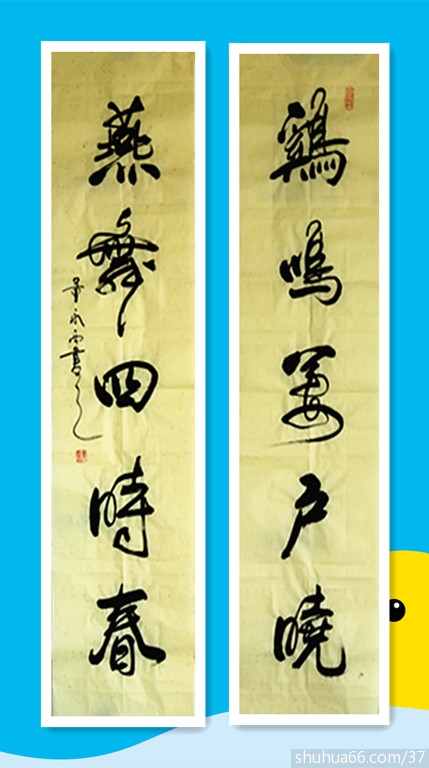 鷄鳴萬户曉
燕舞四時春
shuhua66.com/37